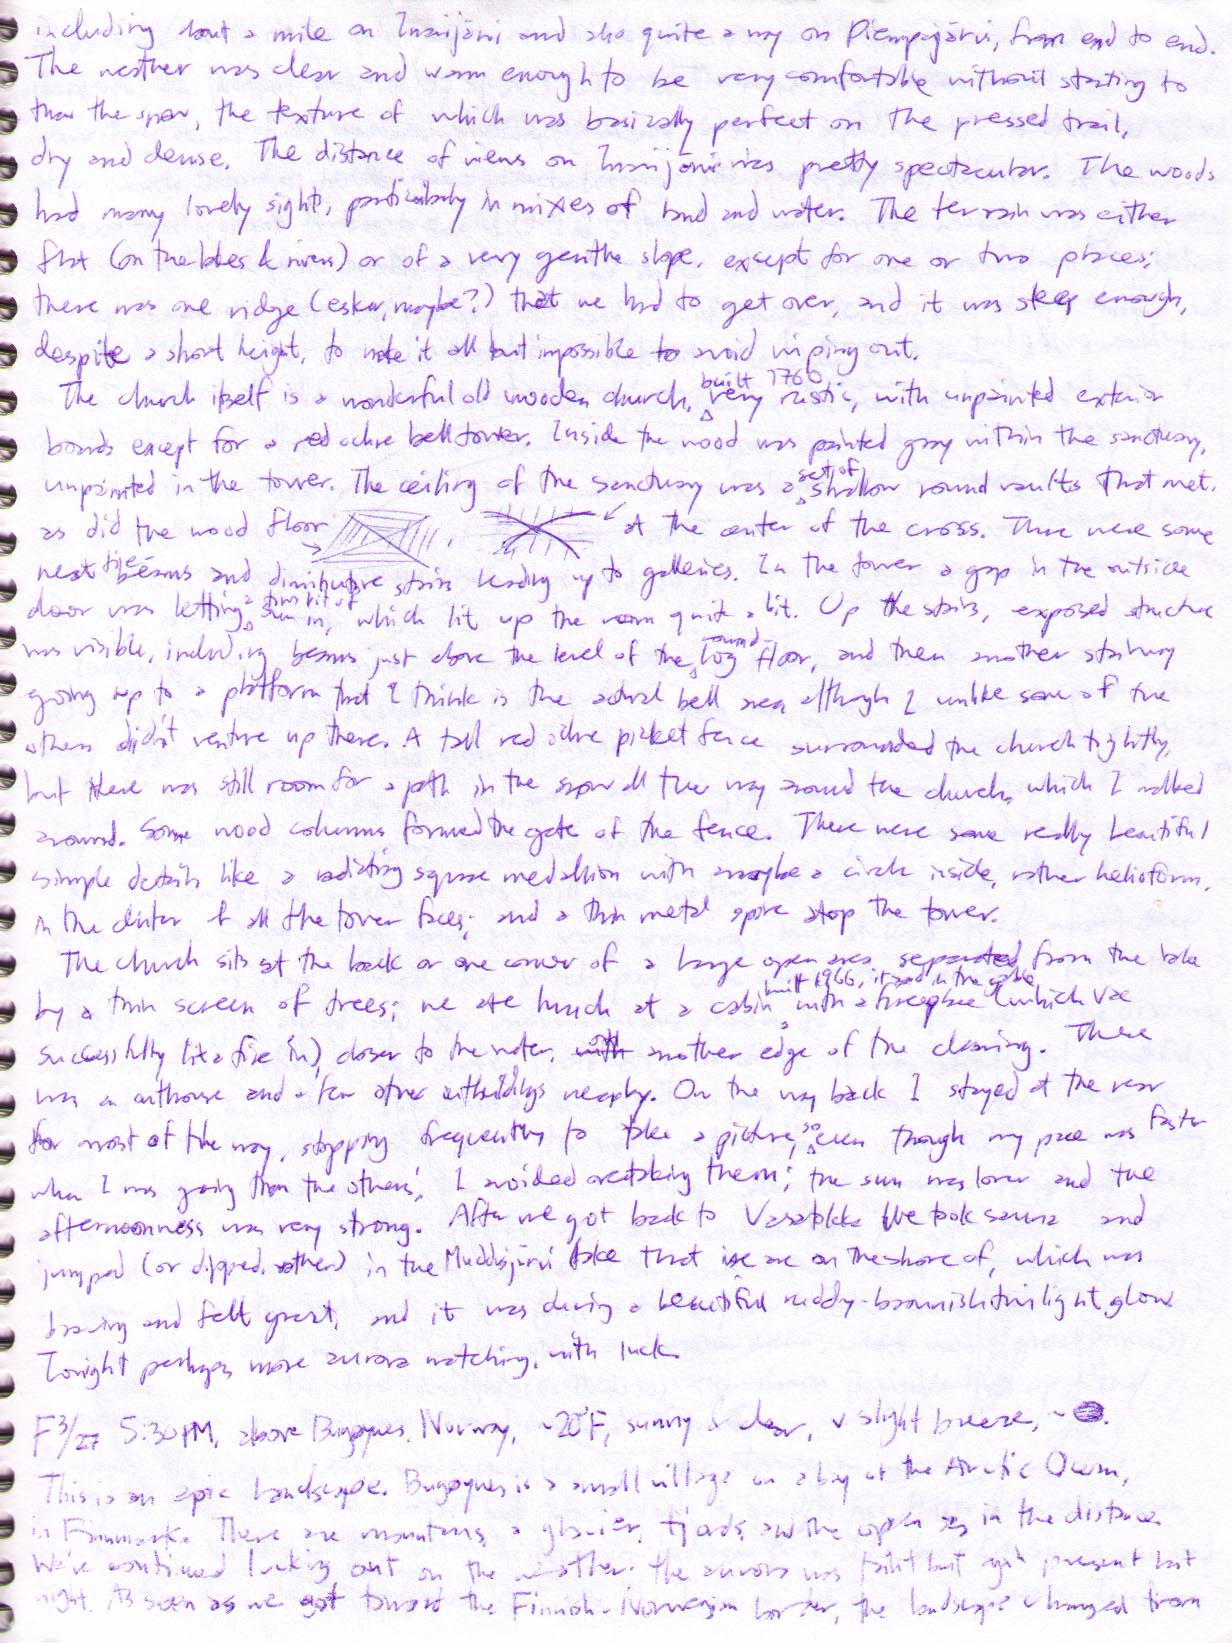 including about a mile on Inarijärvi and also quite a way on Pielpajärvi, from end to end.
The weather was clear and warm enough to be very comfortable without starting to
thaw the snow, the texture of which was basically perfect on the pressed trail,
dry and dense. The distance of views on Inarijärvi was pretty spectacular. The woods
had many lovely sights, particularly in mixes of land and water. The terrain was either
flat (on the lakes & rivers) or of a very gentle slope, except for one or two places;
there was one ridge (esker, maybe?) that we had to get over, and it was steep enough,
despite a short height, to make it all but impossible to avoid wiping out.
The church itself is a wonderful old wooden church, built 1760, very rustic, with unpainted exterior
boards except for a red ochre bell tower. Inside the wood was painted gray within the sanctuary,
unpainted in the tower. The ceiling of the sanctuary was a set of shallow round vaults that met,
as did the wood floor, at the center of the cross. There were some
neat tie-beams and diminutive stairs leading up to galleries. In the tower a gap in the outside
door was letting a tiny bit of sun in, which lit up the room quite a bit. Up the stairs, exposed structure
was visible, including beams just above the level of the round-log floor, and then another stairway
going up to a platform that I think is the actual bell area although I unlike some of the
others didn't venture up there. A tall red ochre picket fence surrounded the church tightly,
but there was still room for a path in the snow all the way around the church, which I walked
around. Some wood columns formed the gate of the fence. There were some really beautiful
simple details like a radiating square medallion with maybe a circle inside, rather helioform,
in the center of all the tower faces; and a thin metal spire atop the tower.
The church sits at the back or one corner of a large open area separated from the lake
by a thin screen of trees; we ate lunch at a cabin built 1966, it said in the gable with a fireplace (which we
successfully lit a fire in) closer to the water, another edge of the clearing. There
was an outhouse and a few other outbuildings nearby. On the way back I stayed at the rear
for most of the way, stopping frequently to take a picture, so even though my pace was faster
when I was going than the others', I avoided overtaking them; the sun was lower and the
afternoonness was very strong. After we got back to Vasatokka we took sauna and
jumped (or dipped, rather) in the Muddusjärvi lake that we are on the shore of, which was
bracing and felt great, and it was during a beautiful ruddy-brownish twilight glow.
Tonight perhaps more aurora watching, with luck.
F 3/27 5:30 PM, above Bugøynes, Norway, ~20°F, sunny & clear, v slight breeze, ~
This is an epic landscape. Bugøynes is a small village on a bay of the Arctic Ocean,
in Finnmark. There are mountains, a glacier, fjords, and the open sea in the distance.
We've continued lucking out on the weather. The aurora was faint but again present last
night. As soon as we got toward the Finnish-Norwegian border, the landscape changed from